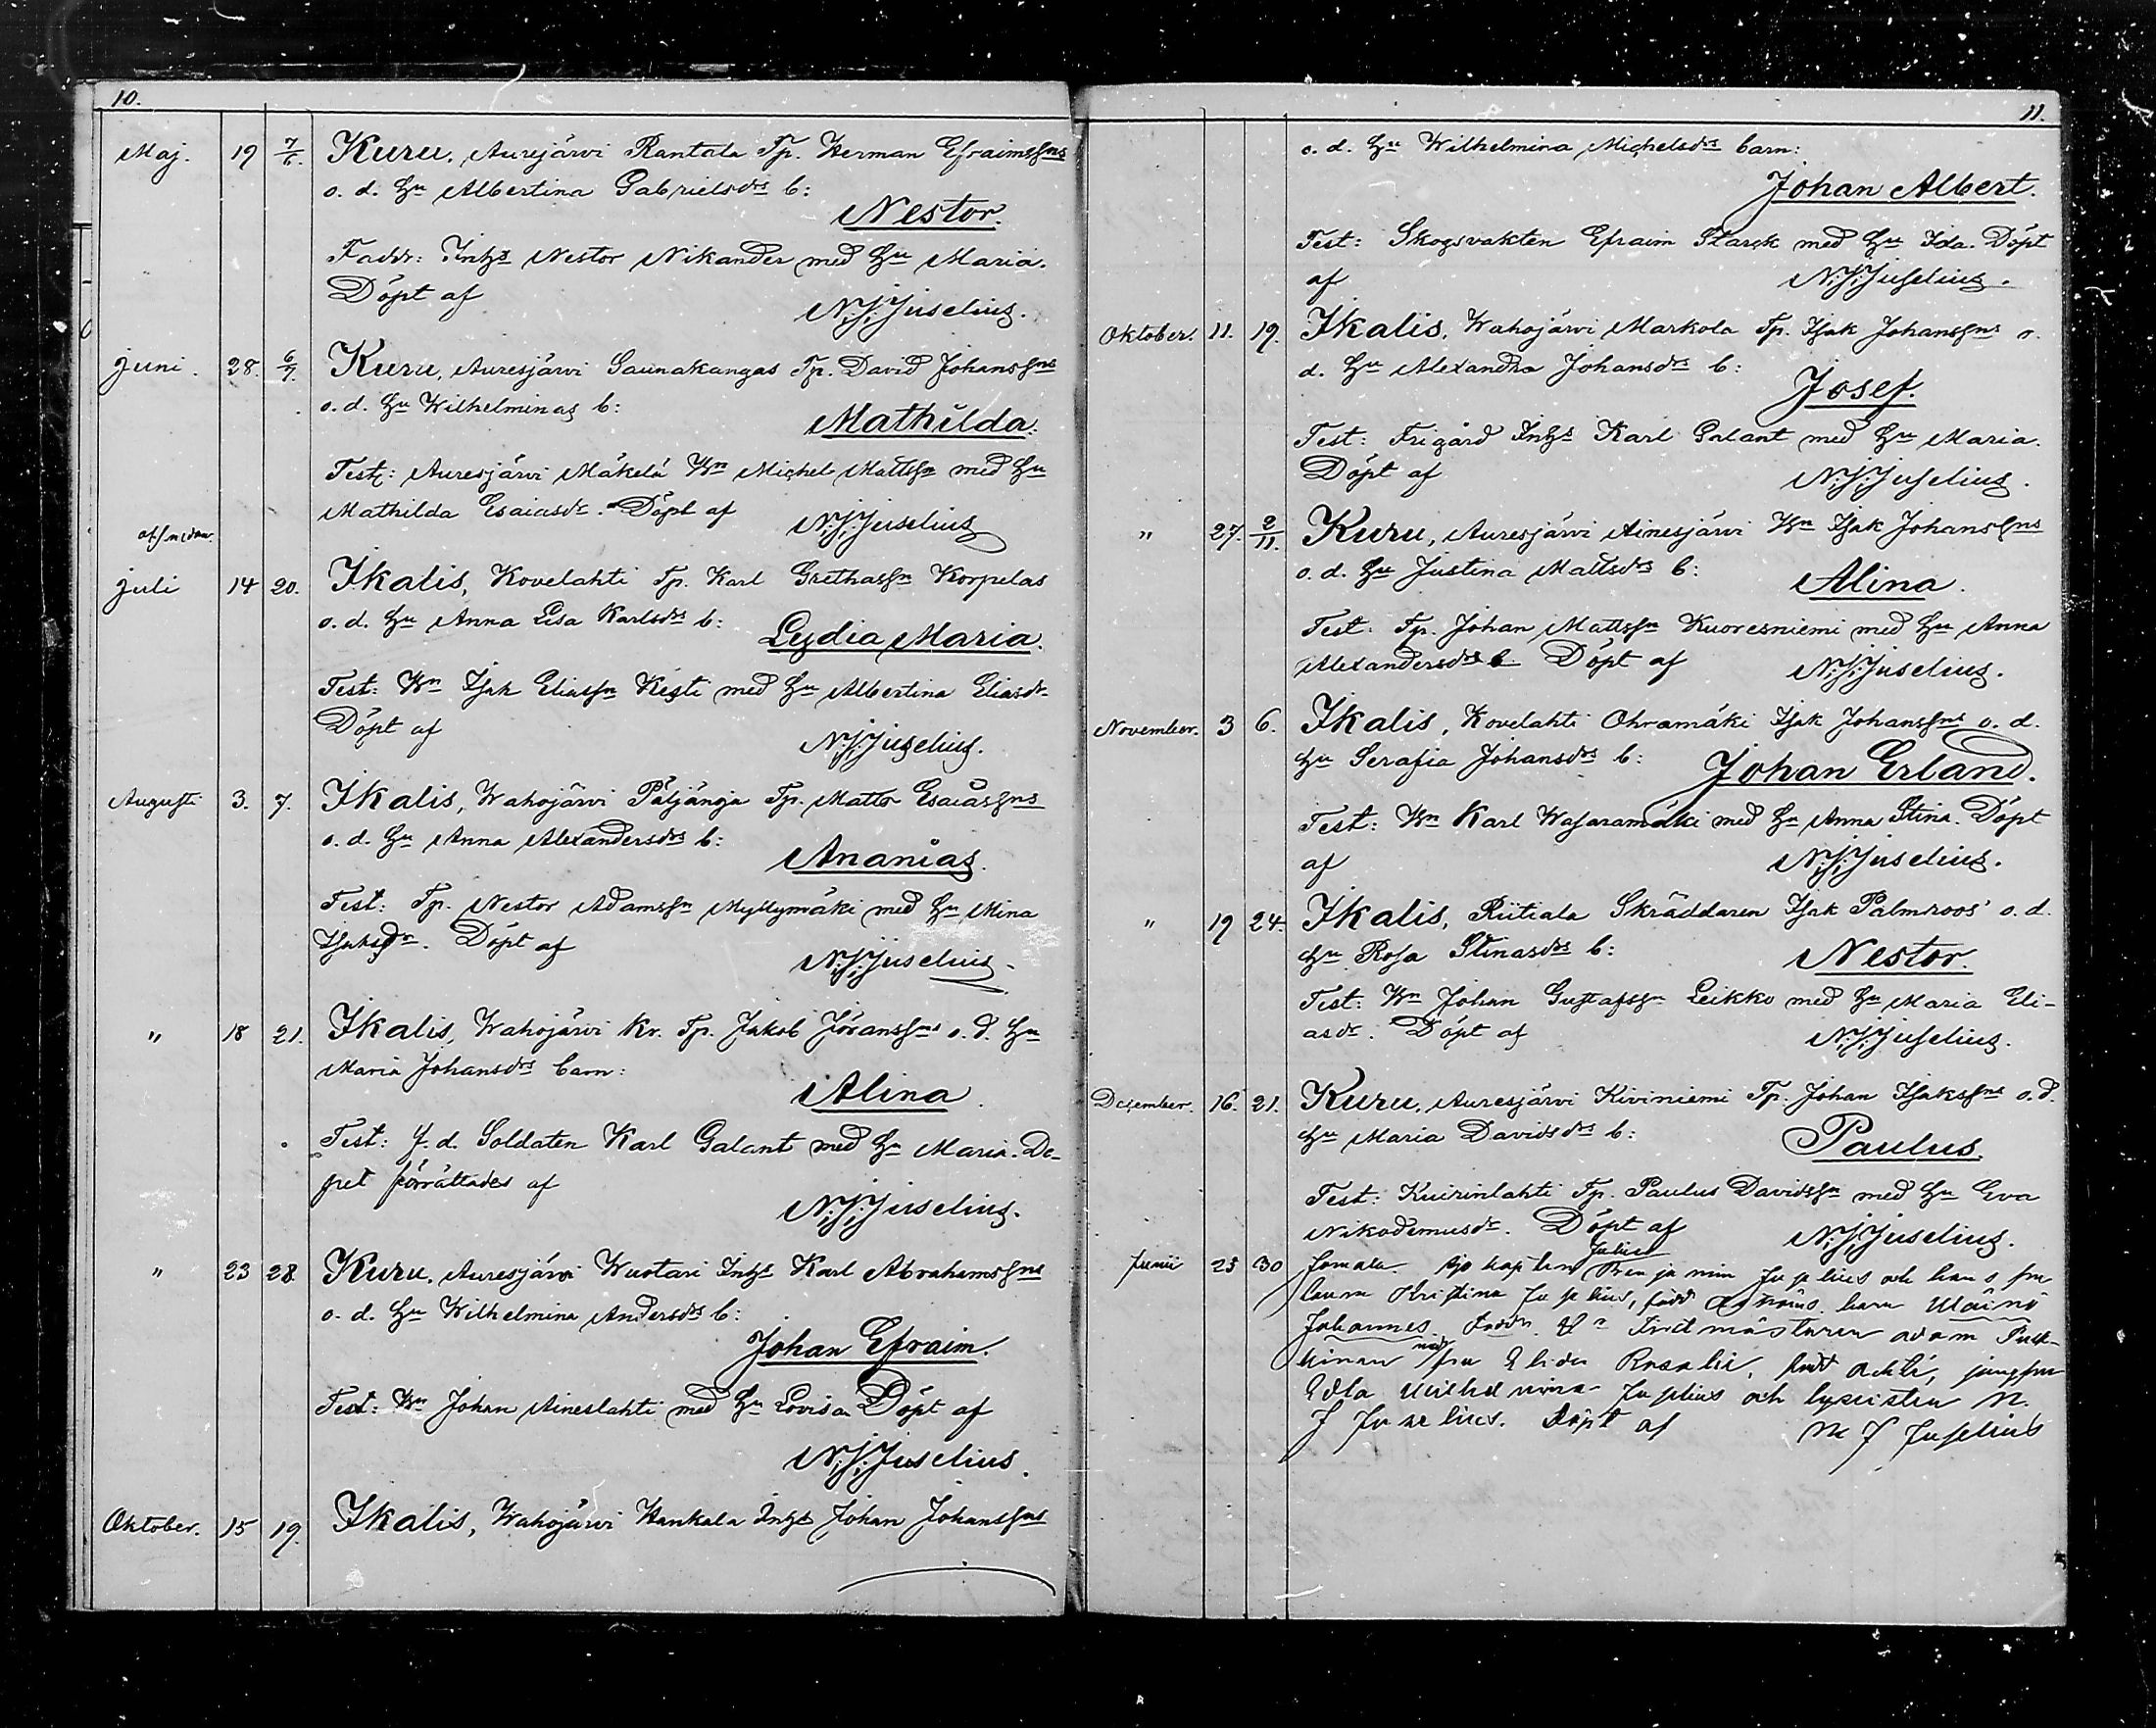 10.
Maj. 19 7/6. Kuru, Aurejärvi Rantala Tp. Herman Efraimssns
o. d. Hu Albertina Gabrielsdrs b:
Nestor.
Faddr: Inhs Nestor Nikander med Hu Maria.
Döpt af N.J.Juselius.
Juni. 28. 6/7. Kuru, Auresjärvi Saunakangas Tp. David Johanssns
o. d. Hu Wilhelminas b:
Mathilda.
Test: Auresjärvi Mäkelä Wn Michel Mattssn med Hu
Mathilda Esaiasdr. Döpt af N.J.Juselius
Juli 14 20. Ikalis, Kovelahti Tp. Karl Grethassn Korpelas
o. d. Hu Anna Lisa Karlsdrs b:
Lydia Maria.
Test: Wn Isak Eliassn Kesti med Hu Albertina Eliasdr.
Döpt af N.J.Juselius.
Augusti 3. 7. Ikalis, Wahojärvi Päljänga Tp. Matts Esaiassns
o. d. Hu Anna Alexandersdrs b:
Ananias.
Test: Tp. Nestor Adamssn Myllymäki med Hu Mina
Isaksdr. Döpt af N.J.Juselius.
" 18 21. Ikalis, Wahojärvi Kr. Tp. Jakob Göranssns o. d. Hu
Maria Johansdrs barn:
Alina.
Test: f. d. Soldaten Karl Galant med Hu Maria. Do-
pet förrättades af
N.J.Juselius.
" 23 28 Kuru, Auresjärvi Wuotari Inhs Karl Abrahamssns
o. d. Hu Wilhelmina Andersdrs b:
Johan Efraim.
Test: Wn Johan Aineslahti med Hu Lovisa Döpt af
N.J.Juselius.
Oktober. 15 19. Ikalis, Wahojärvi Hankala Inhs Johan Johanssns
11.
o. d. Hu Wilhelmina Michelsdrs barn:
Johan Albert.
Test: Skogsvakten Efraim Starck med Hu Ida. Döpt
af N.J.Juselius.
Oktober. 11. 19. Ikalis, Wahojärvi Markola Tp. Isak Johanssns o.
d. Hu Alexandra Johansdrs b:
Josef.
Test: Frigård Inhs Karl Galant med Hu Maria.
Döpt af N.J.Juselius.
" 27. 2/11. Kuru, Auresjärvi Ainesjärvi Wn Isak Johanssns
o. d. Hu Justina Mattsdrs b:
Alina.
Test: Tp. Johan Mattssn Kuoresniemi med Hu Anna
Alexandersdrs b. Döpt af N.J.Juselius.
November. 3 6. Ikalis, Kovelahti Ohramäki Isak Johanssns o. d.
Hu Serafia Johansdrs b: Johan Erland.
Test: Wn Karl Wasaramäki med Hu Anna Stina. Döpt
af N.J.Juselius.
" 19 24. Ikalis, Riitiala Skräddaren Isak Palmroos' o. d.
Hu Rosa Stinasdrs b: Nestor.
Test: Wn Johan Gustafssn Leikko med Hu Maria Eli-
asdr. Döpt af N.J.Juselius.
December. 16. 21. Kuru, Auresjärvi Kiviniemi Tp. Johan Isakssns o. d.
Hu Maria Davidsdrs b: Paulus.
Test: Kuirinlahti Tp. Paulus Davidssn med Hu Eva
Nikodemusdr. Döpt af N.J.Juselius.
Junii 25 30 Sjökapten Julius Benjamin Juselius och hans fru
Laura Kristina Juselius, född barn Wäinö
Johannes. Adam
med fru Rosalie, född jungfru
Edla Wilhelmina Juselius och lyceisten N.
J Juselius. Döpt af N J Juselius